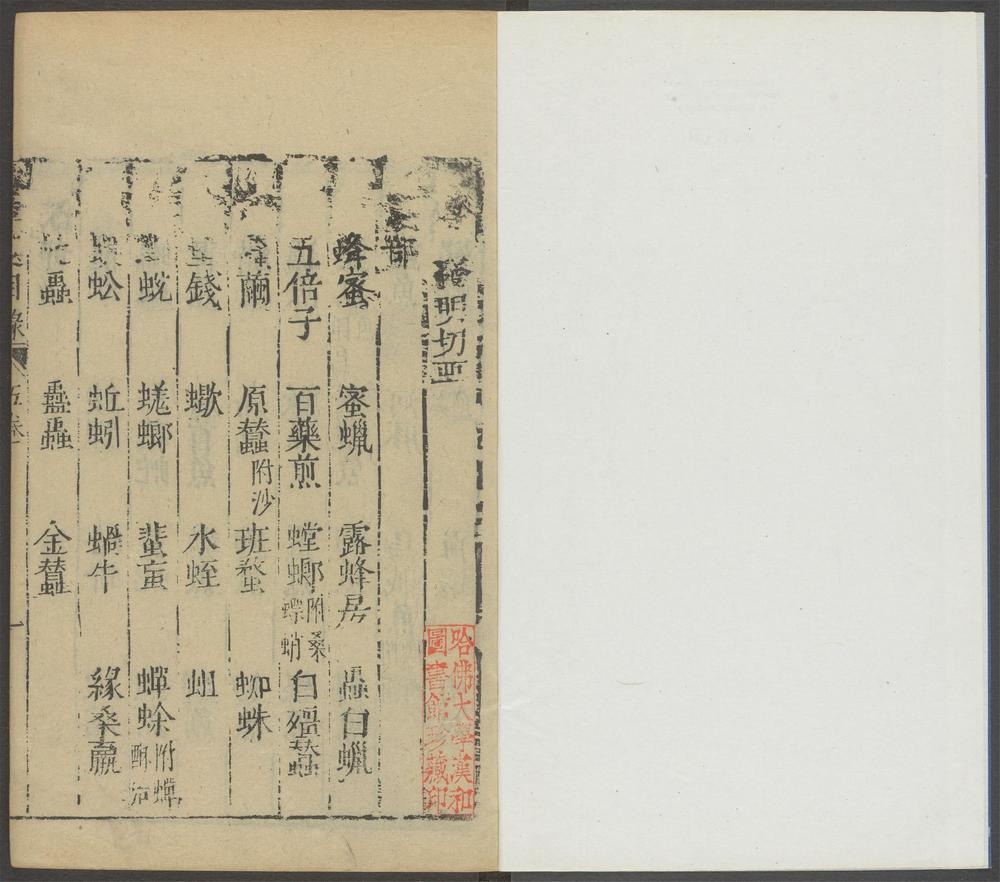 發明切要
部
蜂蜜 蜜蠟 露蜂房 蟲白蠟
五倍子 百藥煎 螳螂附桑螵蛸 白殭蠶
繭 原蠶附沙 班蝥 蜘蛛
錢 蠍 水蛭 蛆
蛻 蜣螂 蜚䖟 蟾蜍附蟾酥
蚣 蚯蚓 蝸牛 緣桑蠃
蟲 蠱蟲 金蠶
目錄 一
哈佛大學漢和
圖書館珍藏印